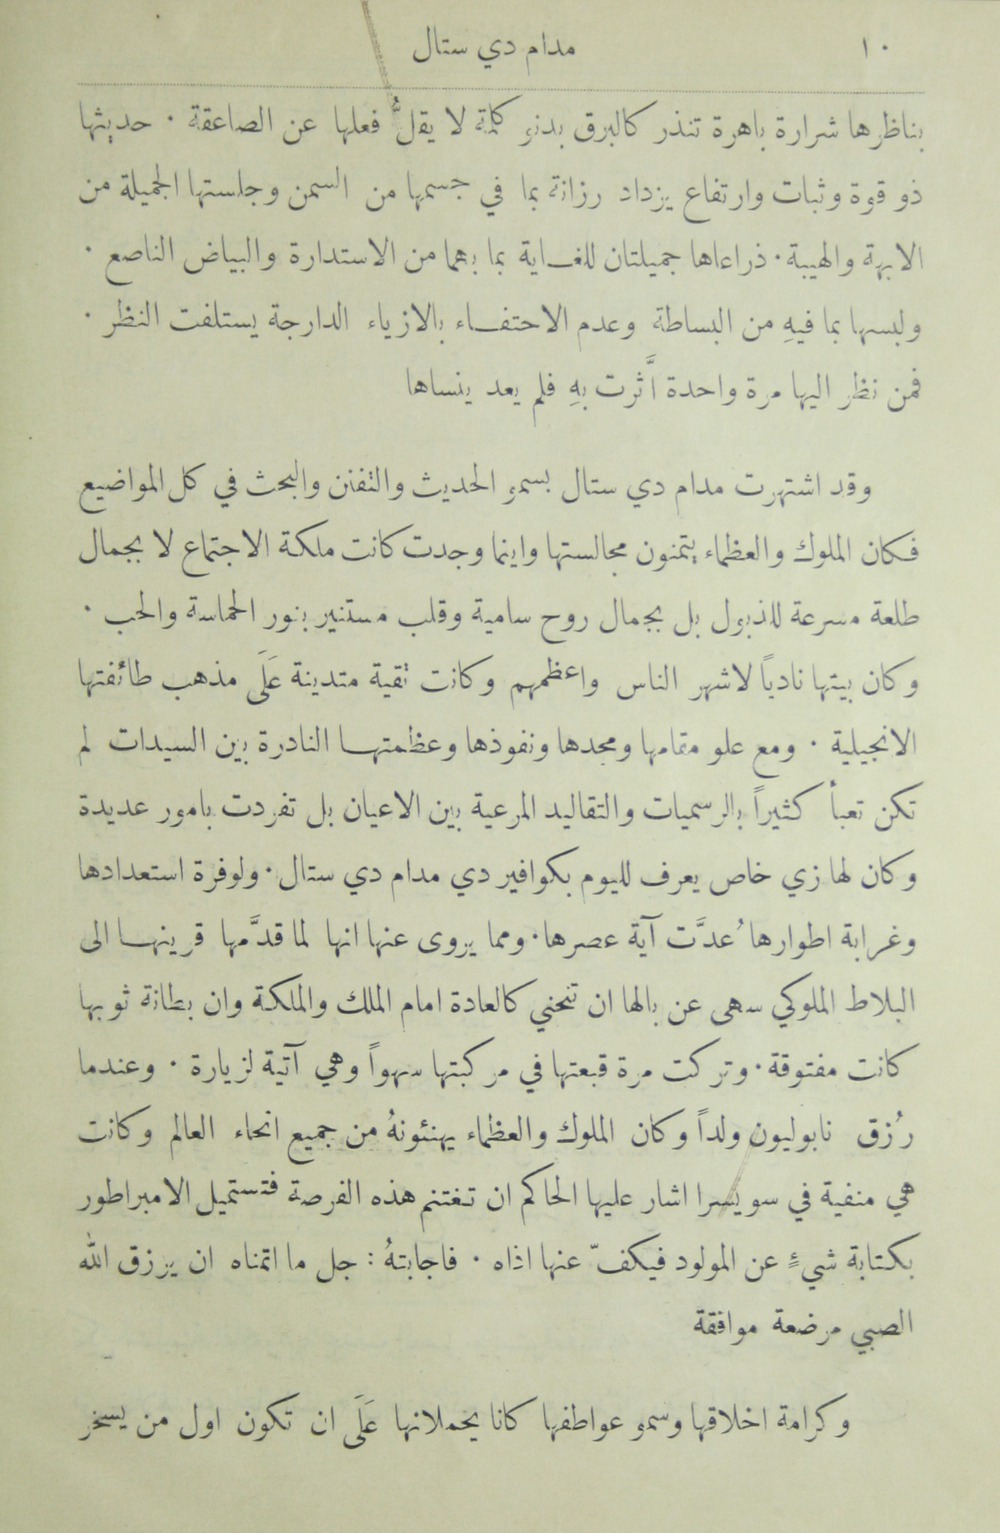 ١٠
مدام دي ستال
بناظرها شرارة باهرة تنذر كالبرق بدنو كلمة لا يقلُّ فعلها عن الصاعقة ٠ حديثها
ذو قوة وثبات وارتفاع يزداد رزانة بما في جسمها من السمن وجلستها الجميلة من
الابهة والهيبة ٠ ذراعاها جميلتان للغاية بما بهما من الاستدارة والبياض الناصع ٠
ولبسها بما فيهِ من البساطة وعدم الاحتفاء بالازياء الدارجة يستلفت النظر ٠
فمن نظر اليها مرة واحدة أَثَّرت بهِ فلم يعد ينساها
وقد اشتهرت مدام دي ستال بسمو الحديث والتفنن والبحث في كل المواضيع
فكان الملوك والعظماء يتمنون مجالستها واينما وجدت كانت ملكة الاجتماع لا بجمال
طلعة مسرعة للذبول بل بجمال روح سامية وقلب مستنير بنور الحماسة والحب ٠
وكان بيتها نادياً لاشهر الناس واعظمهم وكانت تقية متدينة عَلَى مذهب طائفتها
الانجيلية ٠ ومع علو مقامها ومجدها ونفوذها وعظمتها النادرة بين السيدات لم
تكن تعبأ كثيراً بالرسميات والتقاليد المرعية بين الاعيان بل تفردت بامور عديدة
وكان لها زي خاص يعرف لليوم بكوافير دي مدام دي ستال ٠ ولوفرة استعدادها
وغرابة اطوارها عُدَّت آية عصرها ٠ ومما يروى عنها انها لما قدَّمها قرينها الى
البلاط الملوكي سهى عن بالها ان تنحني كالعادة امام الملك والملكة وان بطانة ثوبها
كانت مفتوقة ٠ وتركت مرة قبعتها في مركبتها سهواً وهي آتية لزيارة ٠ وعندما
رُزق نابوليون ولداً وكان الملوك والعظماء يهنئونهُ من جميع انحاء العالم وكانت
هي منفية في سويسرا اشار عليها الحاكم ان تغتنم هذه الفرصة فتستميل الامبراطور
بكتابة شيءٍ عن المولود فيكفّ عنها اذاه ٠ فاجابتهُ : جل ما اتمناه ان يرزق الله
الصبي مرضعة موافقة
وكرامة اخلاقها وسمو عواطفها كانا يحملانها عَلَى ان تكون اول من يسخر